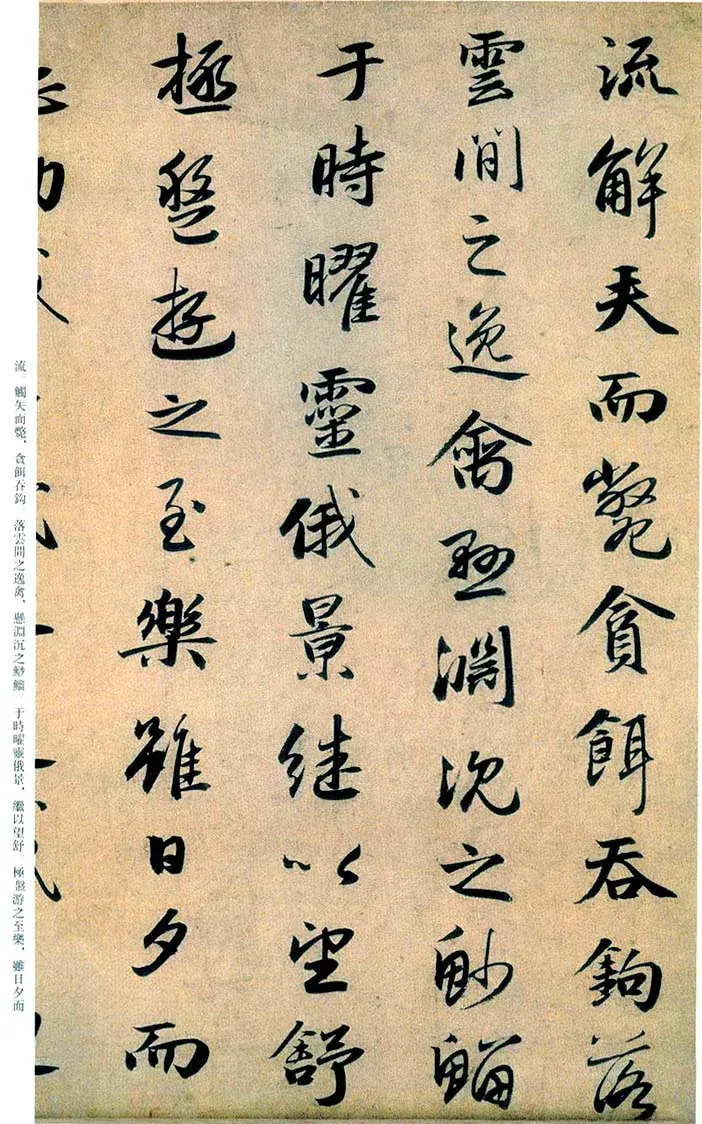 流觧矢而斃貪餌吞鉤落
雲間之逸禽懸淵沉之魦鰡
于時曜靈俄景継以望舒
極盤遊之至樂雖日夕而
流 觸矢而斃、貪餌吞鈎。落雲間之逸禽、懸淵沉之魦鰡 于時曜靈俄景、繼以望舒。極盤游之至樂、雖日夕而